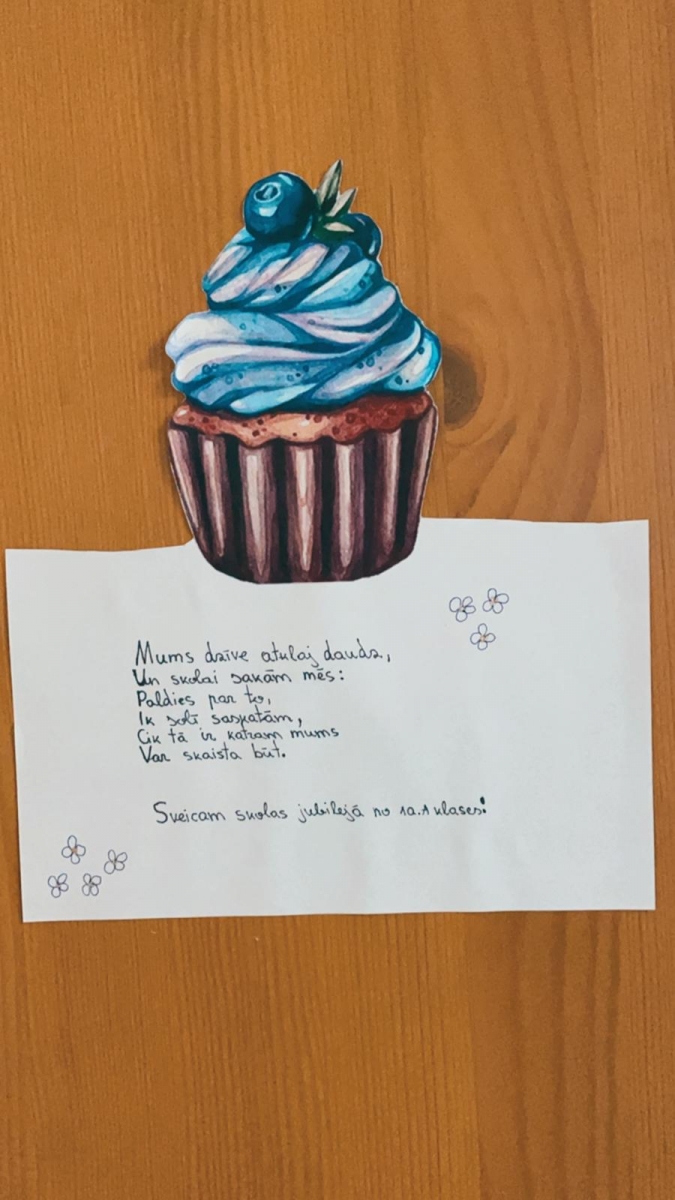 Mums dzīve atulaj daudz,
Un skolai sakām mēs:
Paldies par to,
Ik solī saskatām,
Cik tā ir katram mums
Var skaista būt.
Sveicam skolas jubilejā no 10.1 klases!